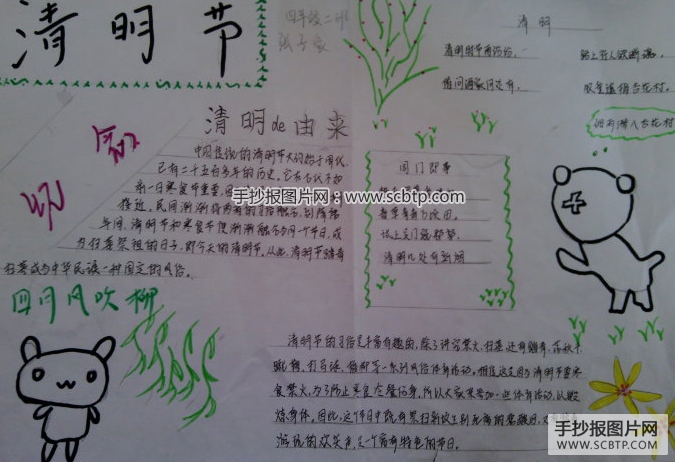 清明节
四年级二班
清明
清明时节雨纷纷,
路上行人欲断魂。
借问酒家何处有,
牧童遥指杏花村。
清明de由来
中国传统的清明节大约始于周代,
已有二千五百多年的历史,
接近,民间渐渐将两者的习俗融合,到隋唐
年间,清明节和寒食节便渐渐融合为同一个节日,成
为扫墓祭祖的日子,即今天的清明节。从此,清明节踏青
扫墓成为中华民族一种固定的风俗。
闾门即事
清明几处有新烟
手抄报图片网:www.scbtp.com
四月风吹柳
清明节的习俗是丰富有趣的,除了讲究禁火、扫墓,还有踏青、荡秋千、
蹴鞠、打马球、插柳等一系列风俗体育活动。相传这是因为清明节要寒
食禁火,为了防止寒食冷餐伤身,所以大家来参加一些体育活动,以锻
炼身体。因此,这个节日中既有祭扫新坟生别死离的悲酸泪,又有踏青
游玩的欢笑声,是一个富有特色的节日。
手抄报图片网
SCBTP.COM